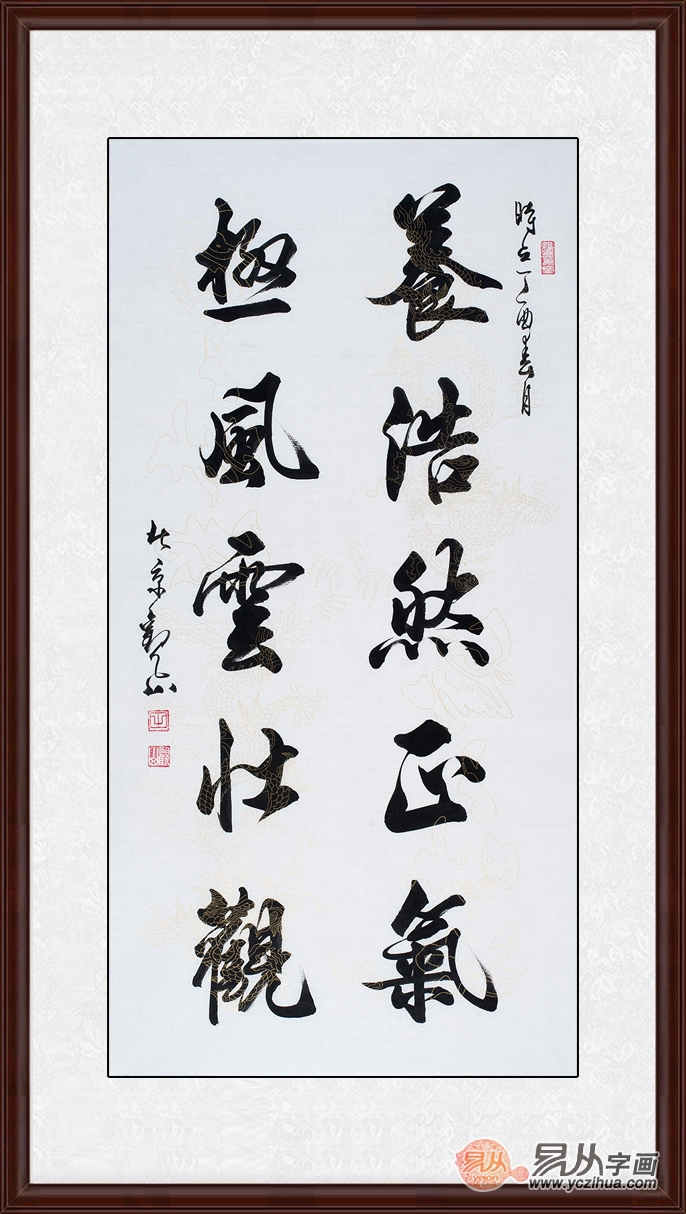 時在丁酉春月
養浩然正氣
極風雲壯觀
北京觀山
易从
易从字画
www.yczihua.com